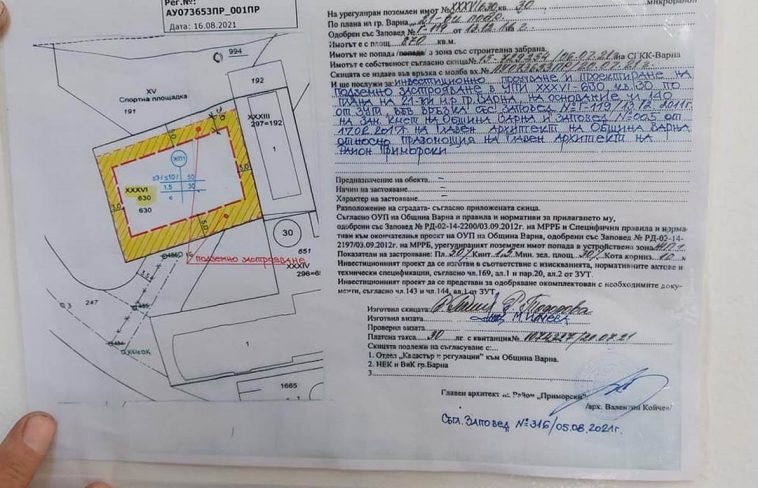 Рег.№:
АУ073653ПР_001ПР
Дата: 16.08.2021
994
192
XV
Спортна площадка
191
XXXIII
297=192
1
5.0
жп1
≤3/≤10/ 50
1.5 30
е
3.0
XXXVI
630
630
5.0
30
851
XXXIV
подземно застрояване
247
3
1
1665
На урегулиран поземлен имот № XXXVI630 кв. 30 микрорайон
По плана на гр. Варна 21-ви подр.
Одобрен със Заповед № Г-119 / 13.12.11г.
Имотът е с площ 870 кв.м.
Имотът не попада/ попада в зона със строителна забрана.
Имотът е собственост съгласно скица на СГКК-Варна
Скицата се издава във връзка с молба вх.
И ще послужи за инвестиционно проучване и проектиране на
подземно застрояване в УПИ XXXVI-630, кв.30 по
плана на 21-ви м.р. гр. Варна, на основание чл. 140
от ЗУТ, във връзка със Заповед №Г-119/13.12.2011г.
на Зам. кмет на Община Варна и Заповед №005 от
17.02.2017г. на Главен архитект на Община Варна
относно правомощия на Главен архитект на
район Приморски
Предназначение на обекта. –
Начин на застрояване –
Характер на застрояване –
Разположение на сградата- съгласно приложената скица.
Съгласно ОУП на Община Варна и правила и нормативи за прилагането му,
одобрени със Заповед № РД-02-14-2200/03.09.2012г. на МРРБ и Специфични правила и норма-
тиви към окончателния проект на ОУП на Община Варна, одобрени със Заповед № РД-02-14-
2197/03.09.2012г. на МРРБ, урегулираният поземлен имот попада в устройствена зона
Показатели на застрояване: Пл. 50% Кинт 1.5 Мин. зел. площ. 30% Кота корниз 10 м
Инвестиционният проект да се изработи в съответствие с изискванията, нормативните актове и
технически спецификации, съгласно чл.169, ал.1 и пар.20, ал.2 от ЗУТ.
Инвестиционният проект да се представи за одобряване окомплектован с необходимите доку-
менти, съгласно чл.143 и чл.144, ал.1 от ЗУТ.
Изготвил скицата:
Изготвил визата
Проверил визата
Платена такса 30 лг. с квитанция №
Скицата подлежи на съгласуване с:
1. Отдел „Кадастър и регулации“ към Община Варна.
2. НЕК и ВиК гр.Варна
3.
Главен архитект на Район „Приморски“
/арх. Валентин Койчев/
Съгл. Заповед №316/05.08.2021г.